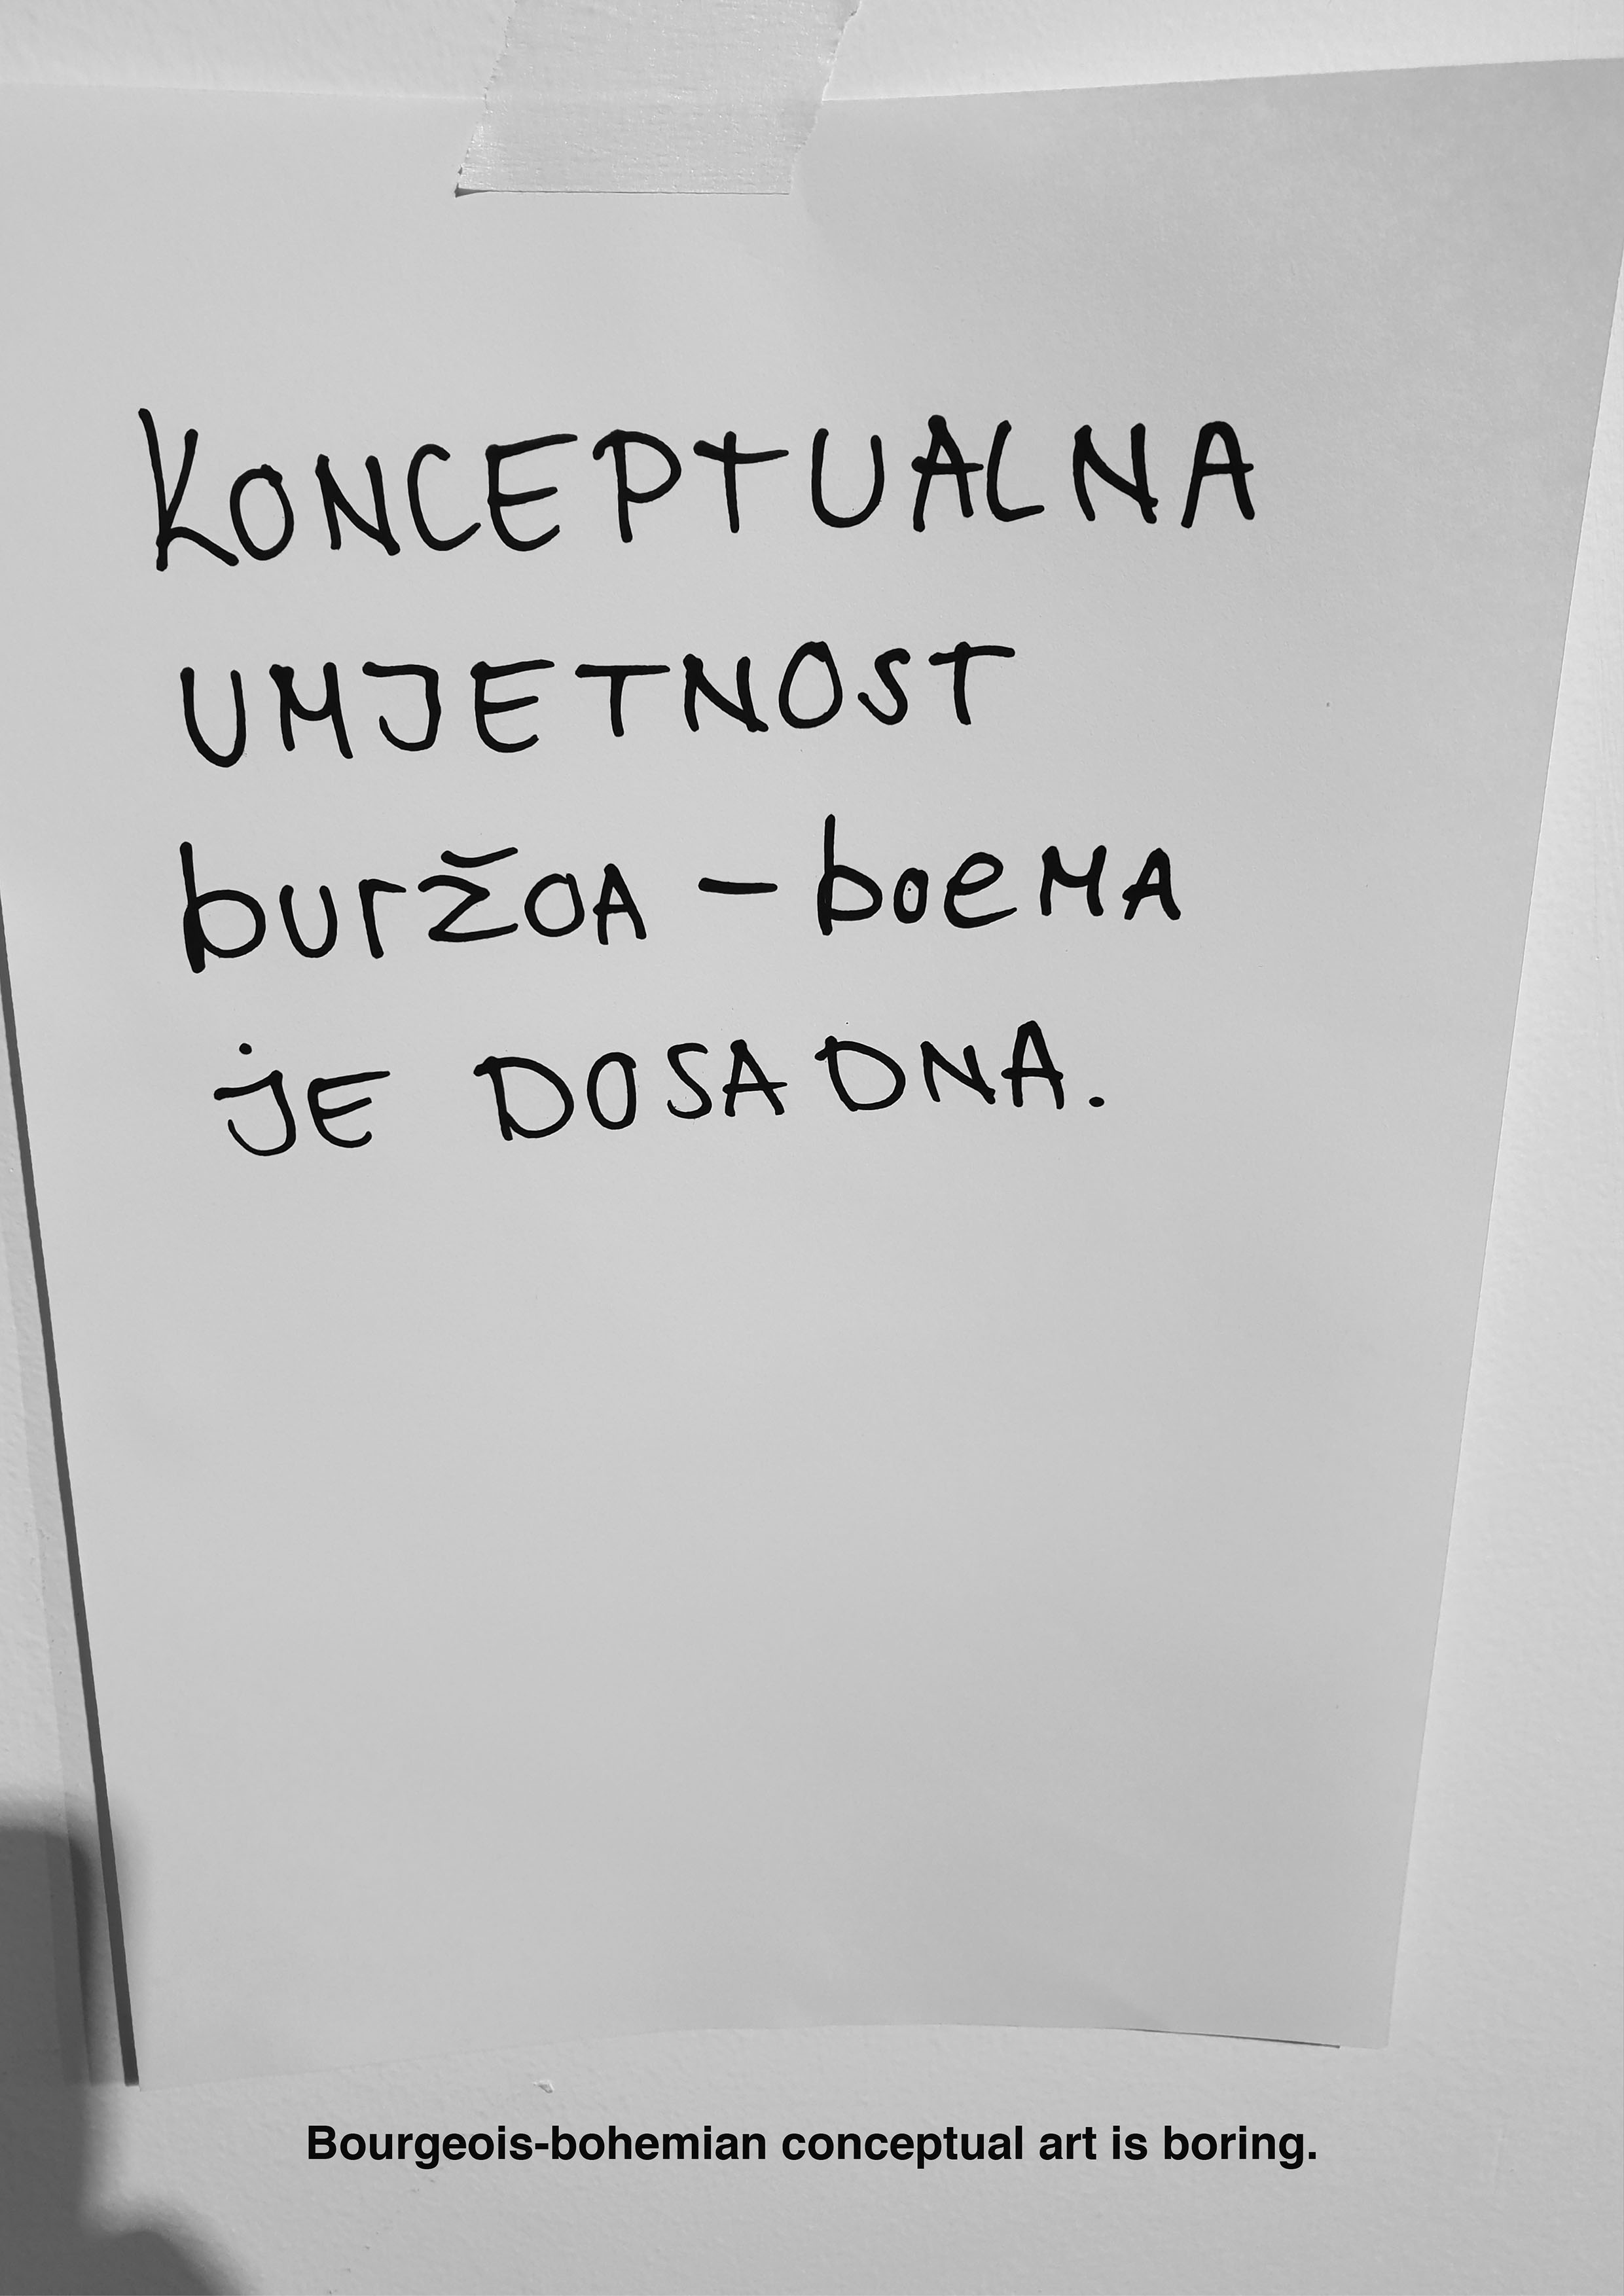 KONCEPTUALNA
UMJETNOST
burŽOA - boeMA
jE DOSADNA.
Bourgeois-bohemian conceptual art is boring.